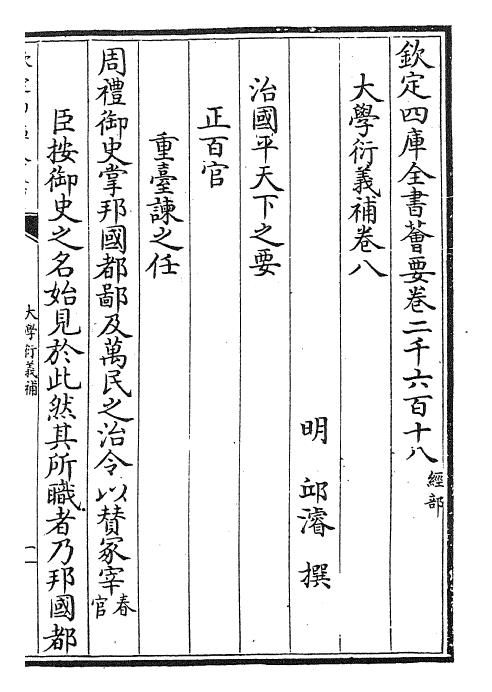 欽定四庫全書薈要卷二千六百十八經部
大學衍義補卷八
明 邱濬 撰
治國平天下之要
正百官
重臺諫之任
周禮御史掌邦國都鄙及萬民之治令以賛冢宰春官
臣按御史之名始見於此然其所職者乃邦國都
大學衍義補
一